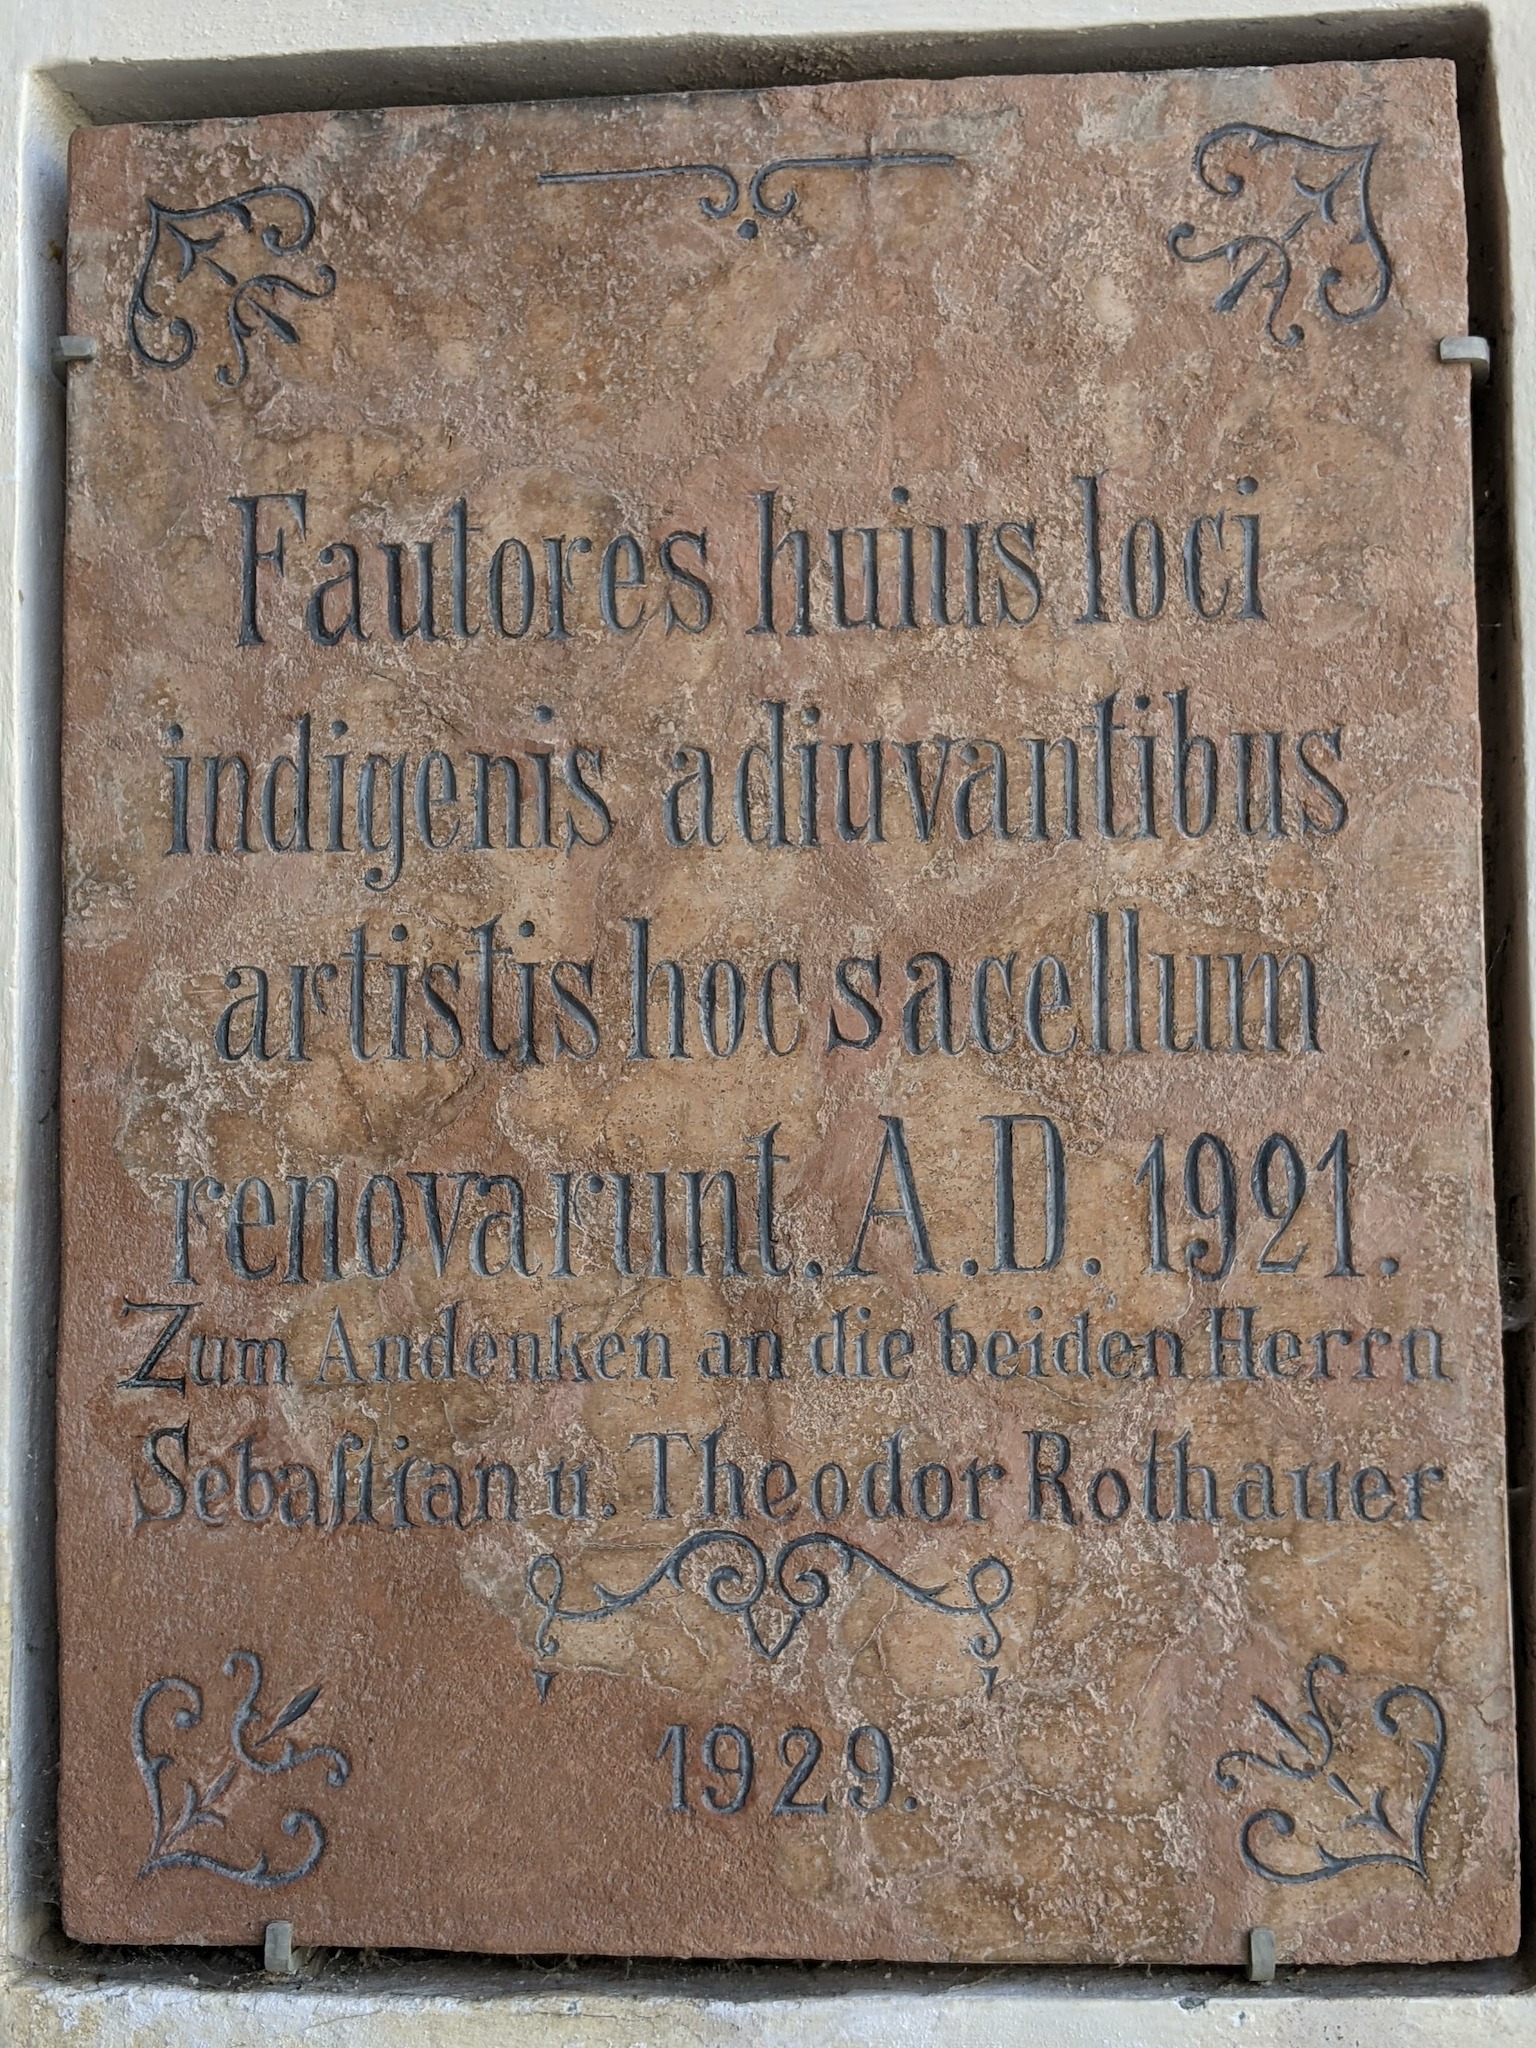 Fautores huius loci
indigenis adiuvantibus
artistis hoc sacellum
renovarunt. A.D. 1921.
Zum Andenken an die beiden Herrn
Sebaſtian u. Theodor Rothauer
1929.